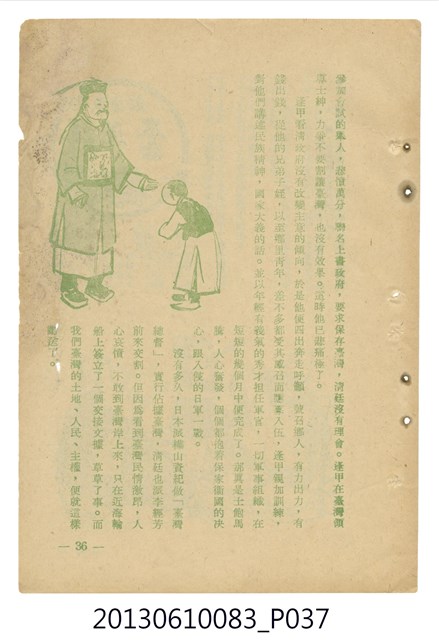 參與會試的舉人，悲憤萬分，聯名上書政府，要求保存臺灣，清廷沒有理會。逢甲在臺灣領
導士紳，力爭不要割讓臺灣，也沒有效果。這時他已悲痛極了。
逢甲看清政府沒有改變主意的傾向，於是他便四出奔走呼籲，號召鄉人，有力出力，有
錢出錢，從他的兄弟子姪，以至鄉里青年，差不多都受其感召而應募入伍。逢甲親加訓練，
對他們講述民族精神，國家大義的話。並以年輕有義氣的秀才擔任軍官，一切軍事組織，在
短短的幾個月中便完成了。那真是士飽馬
騰，人心奮發，個個都抱著保家衛國的決
心，跟入侵的日軍一戰。
沒有多久，日本派樺山資紀做「臺灣
總督」，實行佔據臺灣，清廷也派李經芳
前來交割。但因為看到臺灣民情激昂，人
心哀憤，不敢到臺灣岸上來，只在近海輪
船上簽立了一個交接文據，草草了事。而
我們臺灣的土地、人民、主權，便就這樣
斷送了。
— 36 —
20130610083_P037